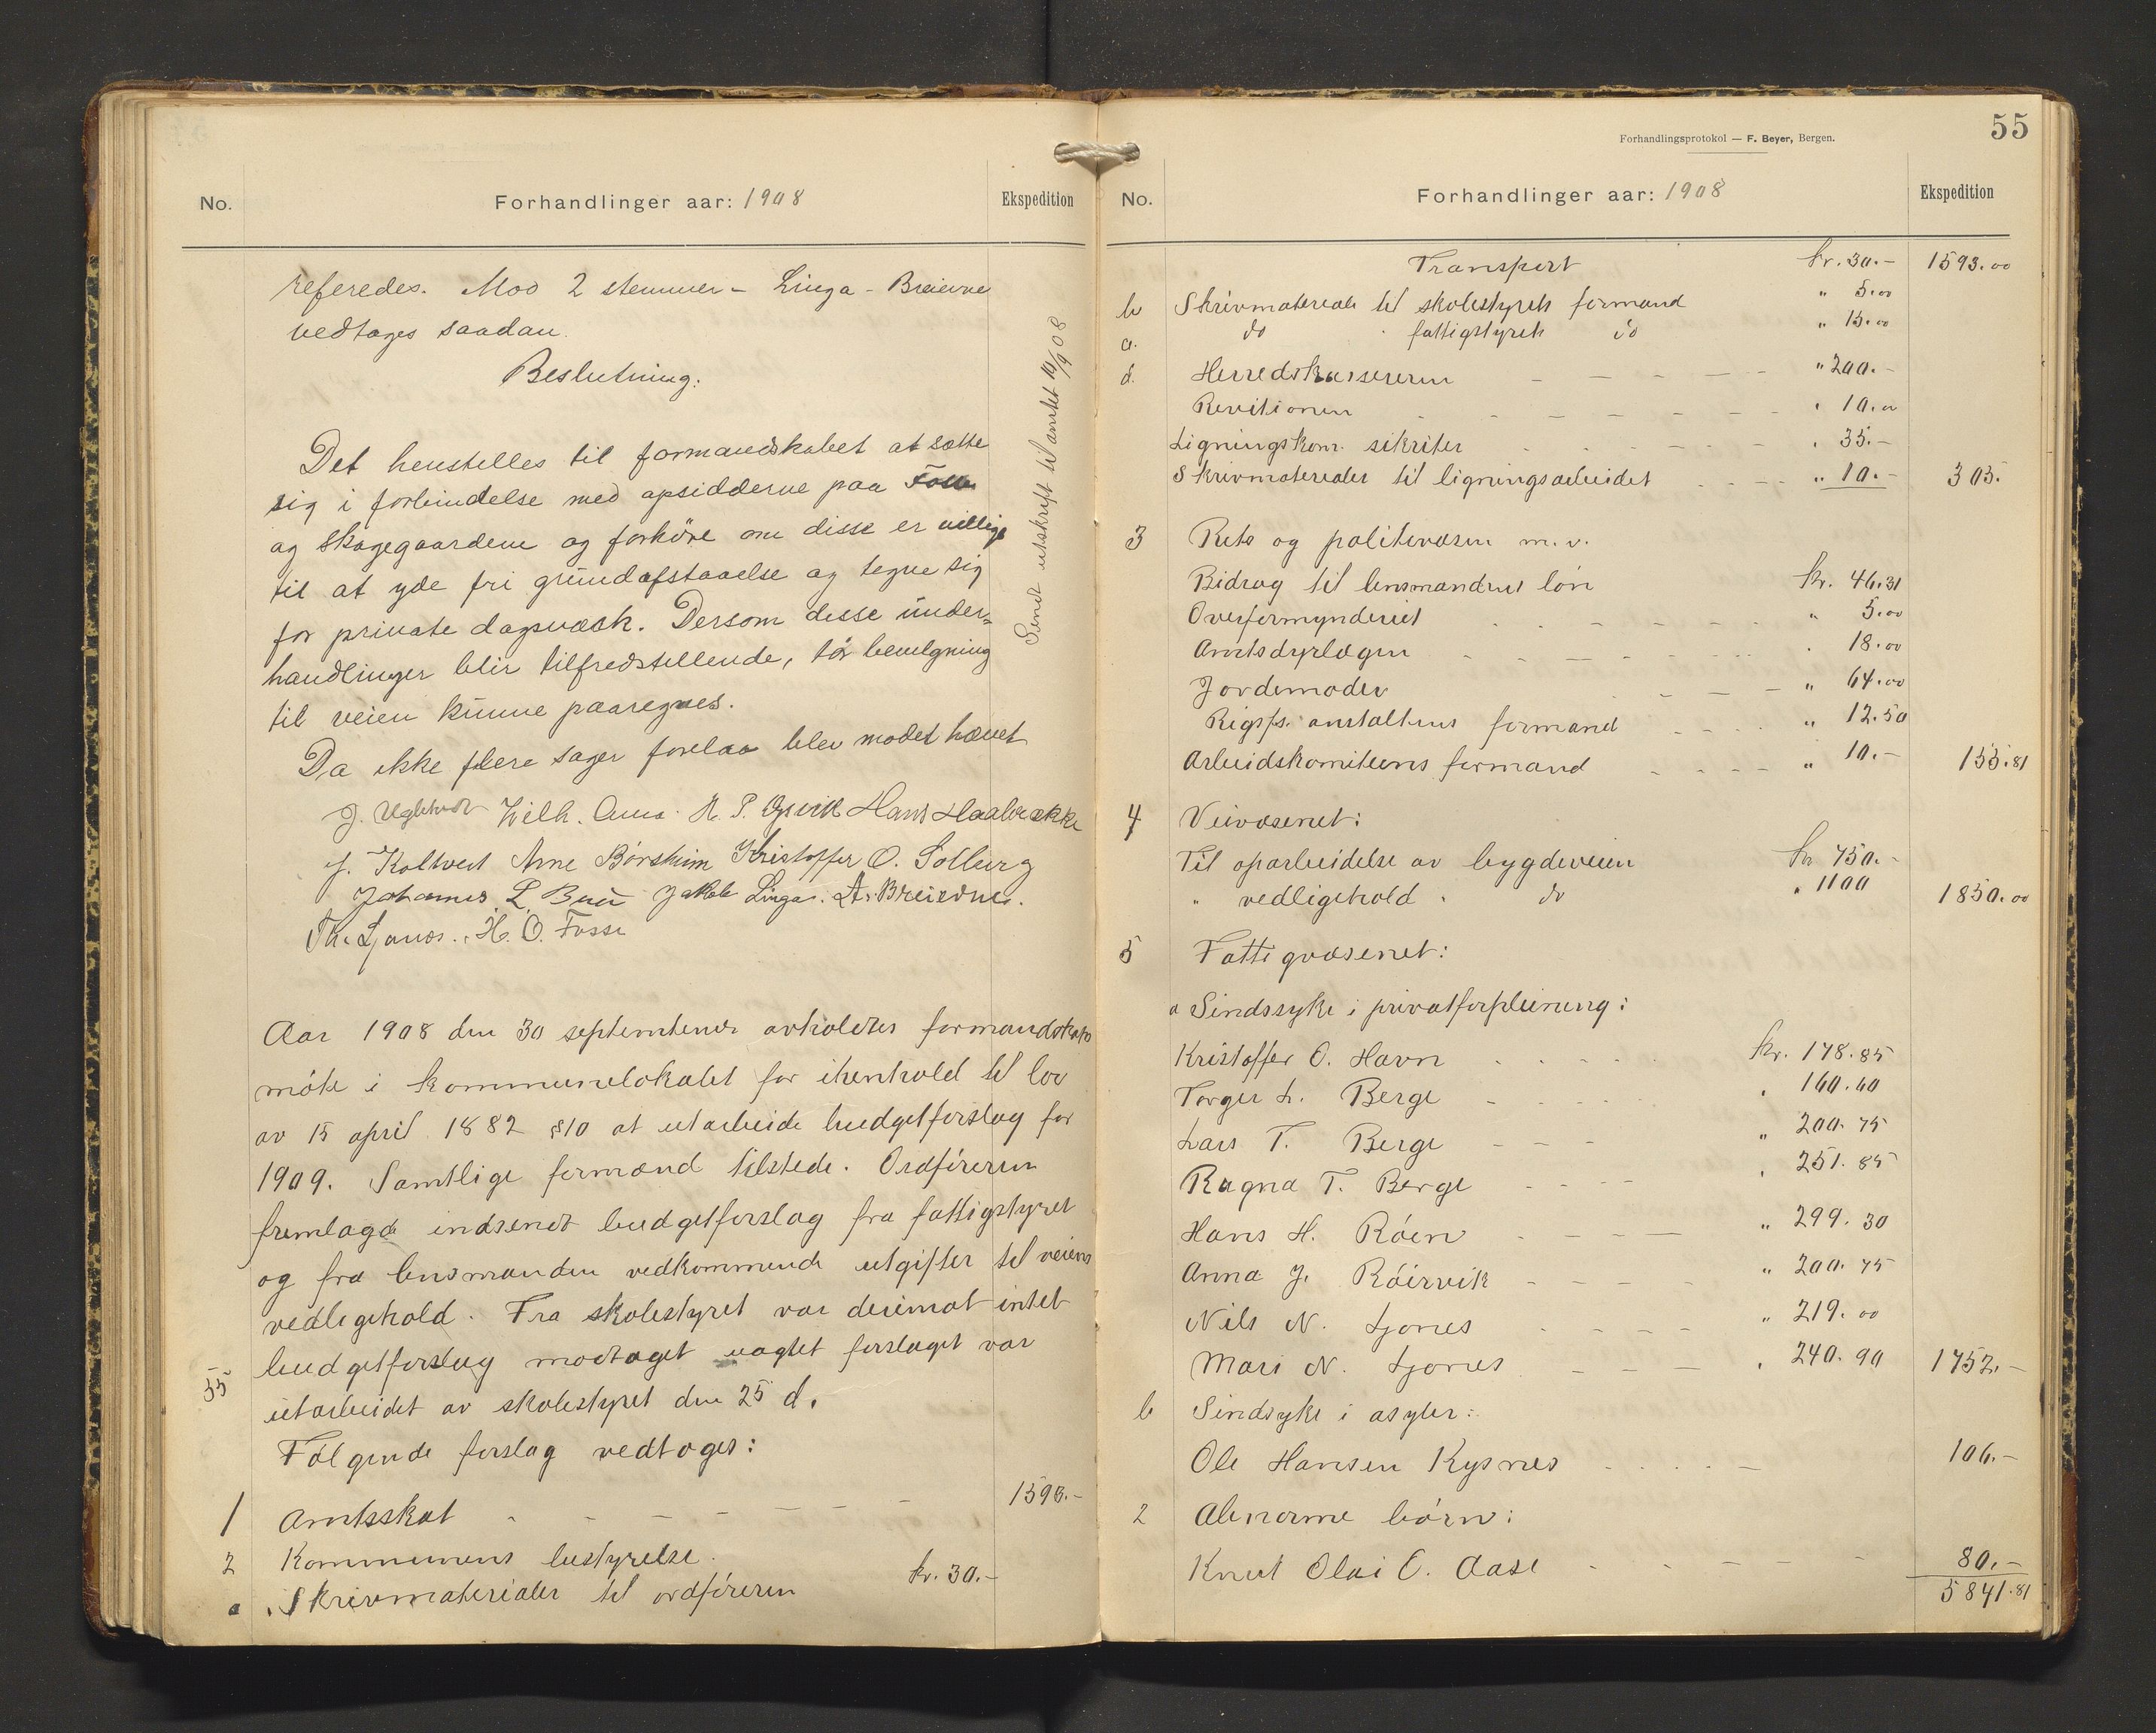 No.
Forhandlinger aar: 1908
Ekspedition
referedes. Mod 2 stemmer - Linga - Breievne
vedtages saadan
Beslutning:
Det henstilles til formandskabet at sætte
sig i forbindelse med opsidderne paa Fosse
og Skogegaardene og forhöre om disse er villige
til at yde fri grundafstaaelse og tegne sig
for private dagsværk. Dersom disse under-
handlinger blir tilfredstellende, tör bevilgning
til veien kunne paaregnes.
Da ikke flere sager forelaa blev modet hævet
Sendt utskrift til amtet 10/9 08
J. Vilh. H. P. Opvik Hans Haabrække
J. Koltveit Arne Börsheim Kristoffer O. Solberg
Johannes L Buu Jakob Linga. A. Breievne.
Th. Ljones. H. O. Fosse
Aar 1908 den 30 september avholdtes formandskaps
möte i kommunelokalet for ihenhold til lov
av 15 april 1882 §10 at utarbeide budgetforslag for
1909. Samtlige formænd tilstede. Ordföreren
fremlagde indsendt budgetforslag fra fattigstyret
og fra lensmanden vedkommende utgifter til veiens
vedligehold. Fra skolestyret var derimot intet
budgetforslag modtaget uagtet forslaget var
55
utarbeidet av skolestyret den 25 d.
Fölgende forslag vedtoges:
1 Amtsskat - - - - - 1593.-
2 Kommunens bestyrelse.
a Skrivmaterialer til ordföreren kr. 30.-
Forhandlingsprotokol — F. Beyer, Bergen.
55
No.
Forhandlinger aar: 1908
Ekspedition
Transport kr. 30.- 1593.00
b Skrivmateriale til skolestyrets formand " 5.00
c. do fattigstyrets do " 15.00
d. Herredskassereren - - - - - " 200.-
Revitionen - - - - - - " 10.00
Ligningskom. sikriter - - - - " 35.-
Skrivmaterialer til ligningsarbeidet - - - " 10.- 305.
3 Rets og politivæsen m.v.
Bidrag til lensmandens lön kr. 46.31
Overformynderiet - - - - - " 5.00
Amtsdyrlægen - - - - - " 18.00
Jordemoder - - - - " 64.00
Rigsfs. anstaltens formand - - - - " 12.50
Arbeidskomiteens formand - - - - " 10.- 155.81
4 Veivæsenet:
Til oparbeidelse av bygdeveien kr 750.-
" vedligehold " do " 1100 1850.00
5 Fattigvæsenet:
a Sindssyke i privatforpleining:
Kristoffer O. Havn - - - - kr. 178.85
Torger L. Berge - - - - " 160.60
Lars T. Berge - - - " 200.75
Ragna T. Berge - - - - " 251.85
Hans H. Röen - - - - " 299.30
Anna J. Röirvik - - - - " 200.75
Nils N. Ljones - - - - " 219.00
Mari N. Ljones - - - " 240.90 1752.-
b Sindsyke i asyler:
Ole Hansen Kysnes - - - - - 106.-
2 Abnorme börn:
Knut Olai O. Aase - - - - - 80.-
5841.81